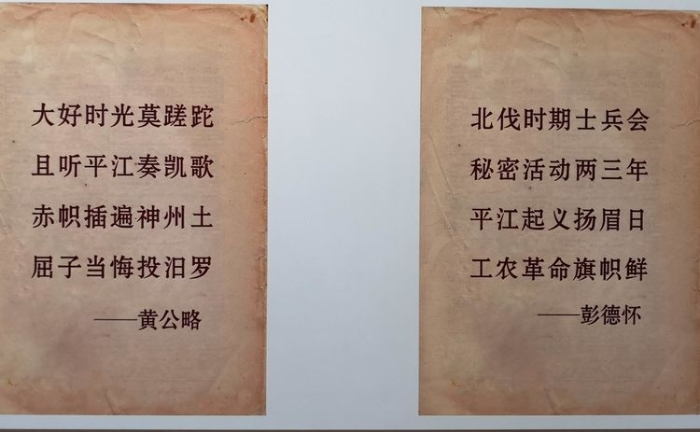 大好时光莫蹉跎
且听平江奏凯歌
赤帜插遍神州土
屈子当悔投汨罗
——黄公略
北伐时期士兵会
秘密活动两三年
平江起义扬眉日
工农革命旗帜鲜
——彭德怀